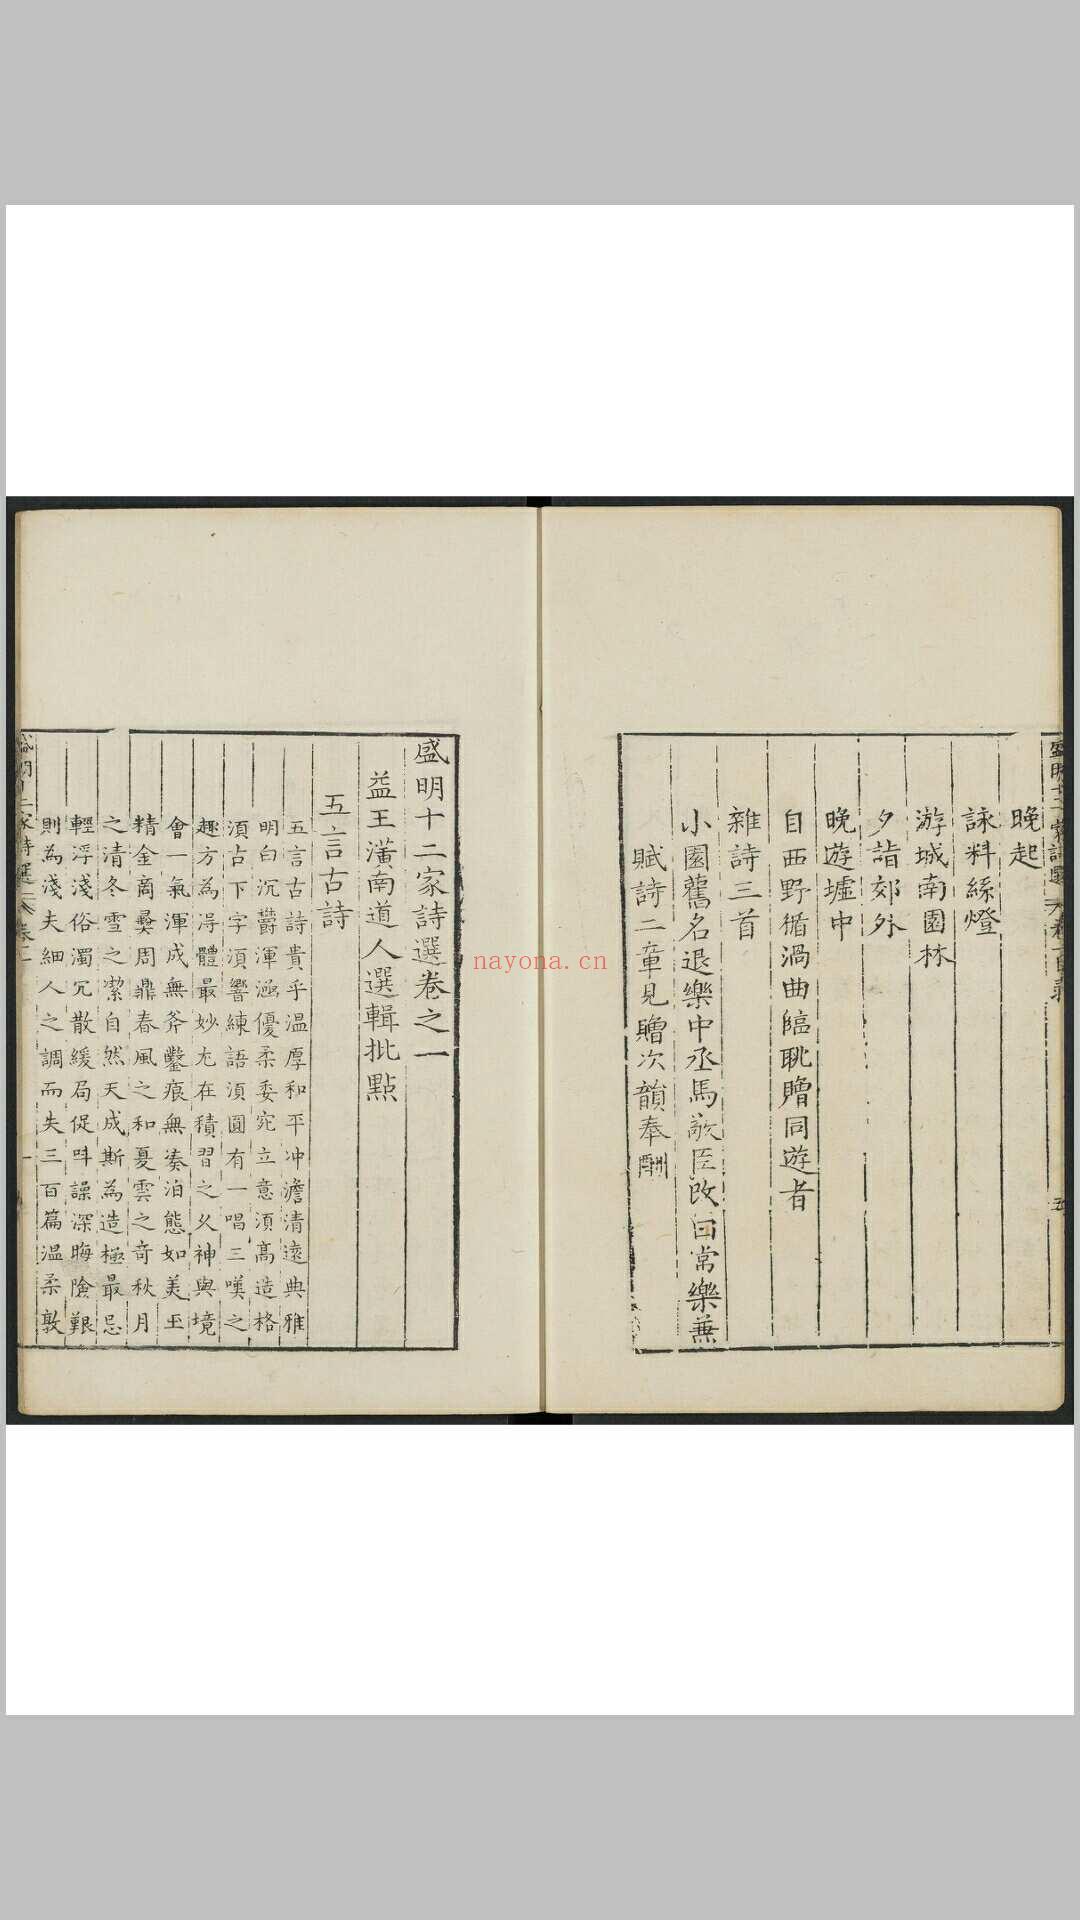 晚起
詠料絲燈
游城南園林
夕詣郊外
晚遊墟中
自西野循渦曲臨眺贈同遊者
雜詩三首
小園舊名退樂中丞馬歒臣改曰常樂蕪
賦詩二章見贈次韻奉酬
盛明十二家詩選卷之一
益王潢南道人選輯批點
五言古詩
五言古詩貴乎溫厚和平冲澹清遠典雅
明白沉欝渾涵優柔委宛立意湏髙造格
湏古下字湏響練語湏圓有一唱三嘆之
趣方為淂體最妙尤在積習之乆神與境
會一氣渾成無斧鑿痕無凑泊態如美玉
精金商彛周鼎春風之和夏雲之竒秋月
之清冬雪之潔自然天成斯為造極最忌
輕浮淺俗濁冗散緩局促呌譟深晦險艱
則為淺夫細人之調而失三百篇溫柔敦
盛明十二家詩選 卷一 一
nayona.cn